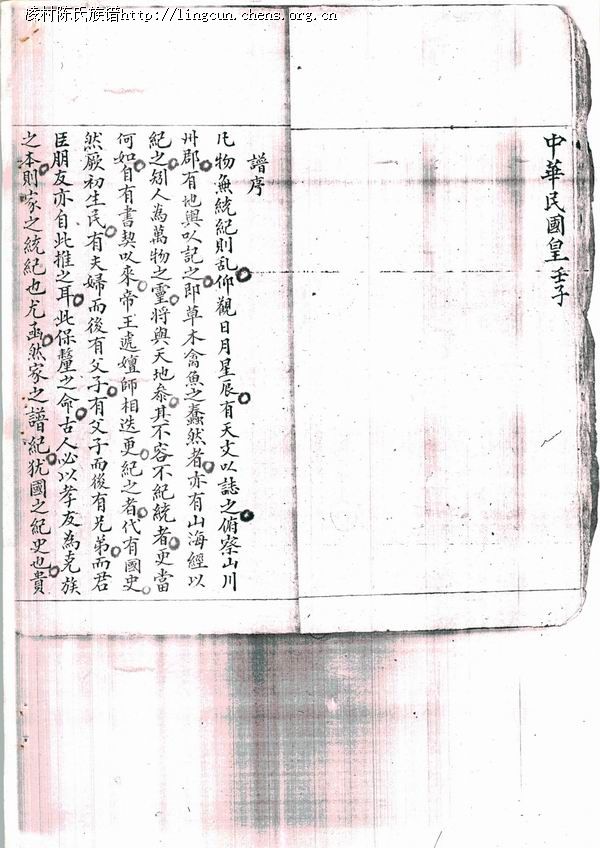 凌村陈氏族谱http://lingcun.chens.org.cn
中華民國皇壬子
譜序
凡物無統紀則乱仰觀日月星辰有天文以誌之俯察山川
州郡有地輿以記之即草木禽魚之蠢然者亦有山海經以
紀之矧人為萬物之靈将與天地叅其不容不紀統者更當
何如自有書契以來帝王遞嬗師相迭更紀之者代有國史
然厥初生民有夫婦而後有父子有父子而後有兄弟而君
臣朋友亦自此推之耳此保釐之命古人必以孝友為克族
之本則家之統紀也尤亟然家之譜紀犹國之紀史也貴